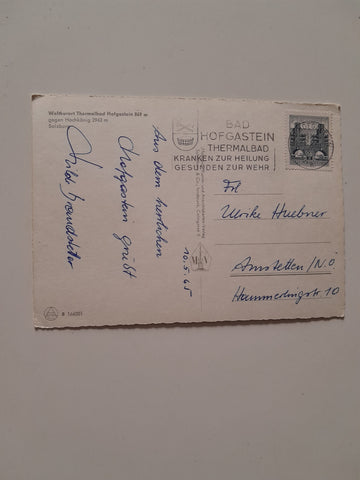 Weltkurort Thermalbad Hofgastein 869 m
gegen Hochkönig 2943 m
Salzburg
Aus dem herrlichen
Hofgastein grüßt
10.5.65
BAD
HOFGASTEIN
THERMALBAD
KRANKEN ZUR HEILUNG
GESUNDEN ZUR WEHR
Frl
Ulrike Huebner
Amstetten/N.Ö
Hammerlingstr 10